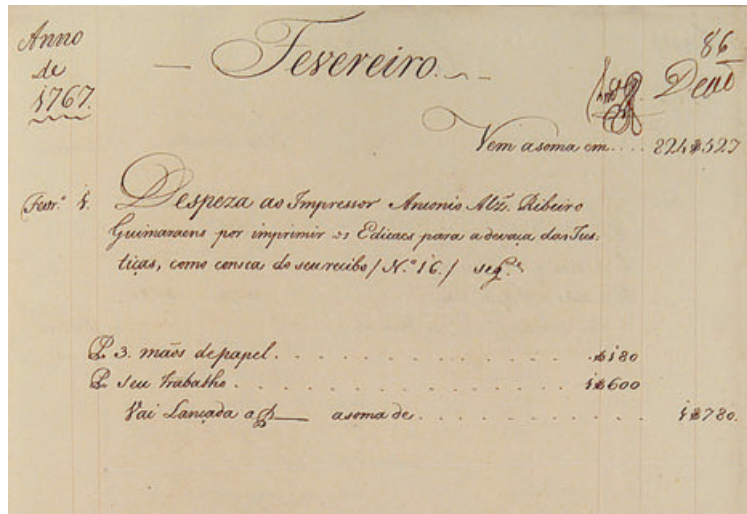 86
Anno
de
1767.
Fevereiro.
Vem a soma em.... 224$527
Fevr.º 4. Despeza ao Impressor Antonio Alz. Ribeiro
Guimaraens por imprimir os Edicaes para a devaça das Jus-
tiças, como consta do seu recibo / N.º 16. / seg.te
P. 3. mãos de papel. $180
P. seu trabalho. 1$600
Vai Lançada a a soma de. 1$780.